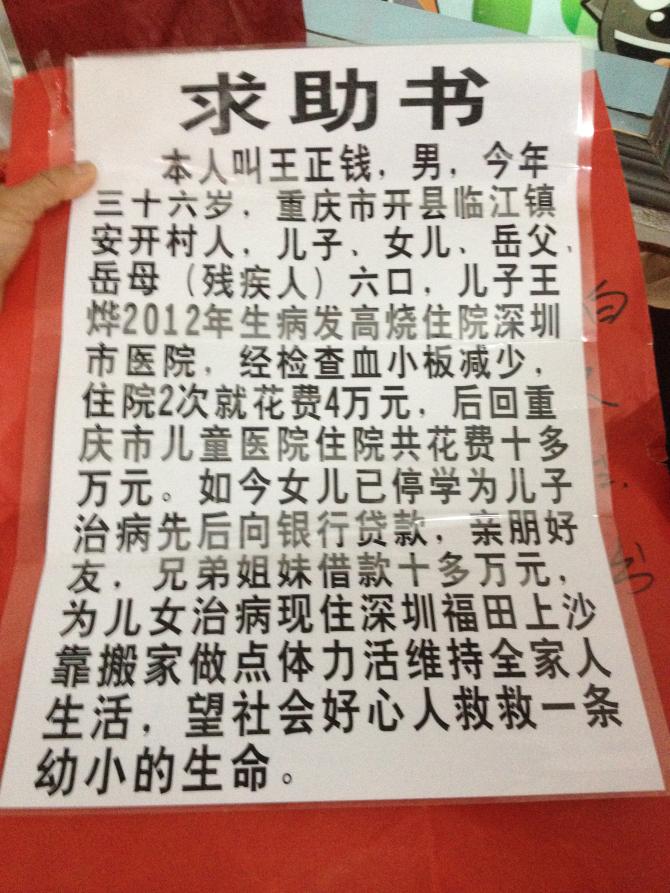 求助书
本人叫王正钱，男，今年
三十六岁，重庆市开县临江镇
安开村人，儿子、女儿、岳父、
岳母（残疾人）六口，儿子王
烨2012年生病发高烧住院深圳
市医院，经检查血小板减少，
住院2次就花费4万元，后回重
庆市儿童医院住院共花费十多
万元。如今女儿已停学为儿子
治病先后向银行贷款，亲朋好
友，兄弟姐妹借款十多万元，
为儿女治病现住深圳福田上沙
靠搬家做点体力活维持全家人
生活，望社会好心人救救一条
幼小的生命。